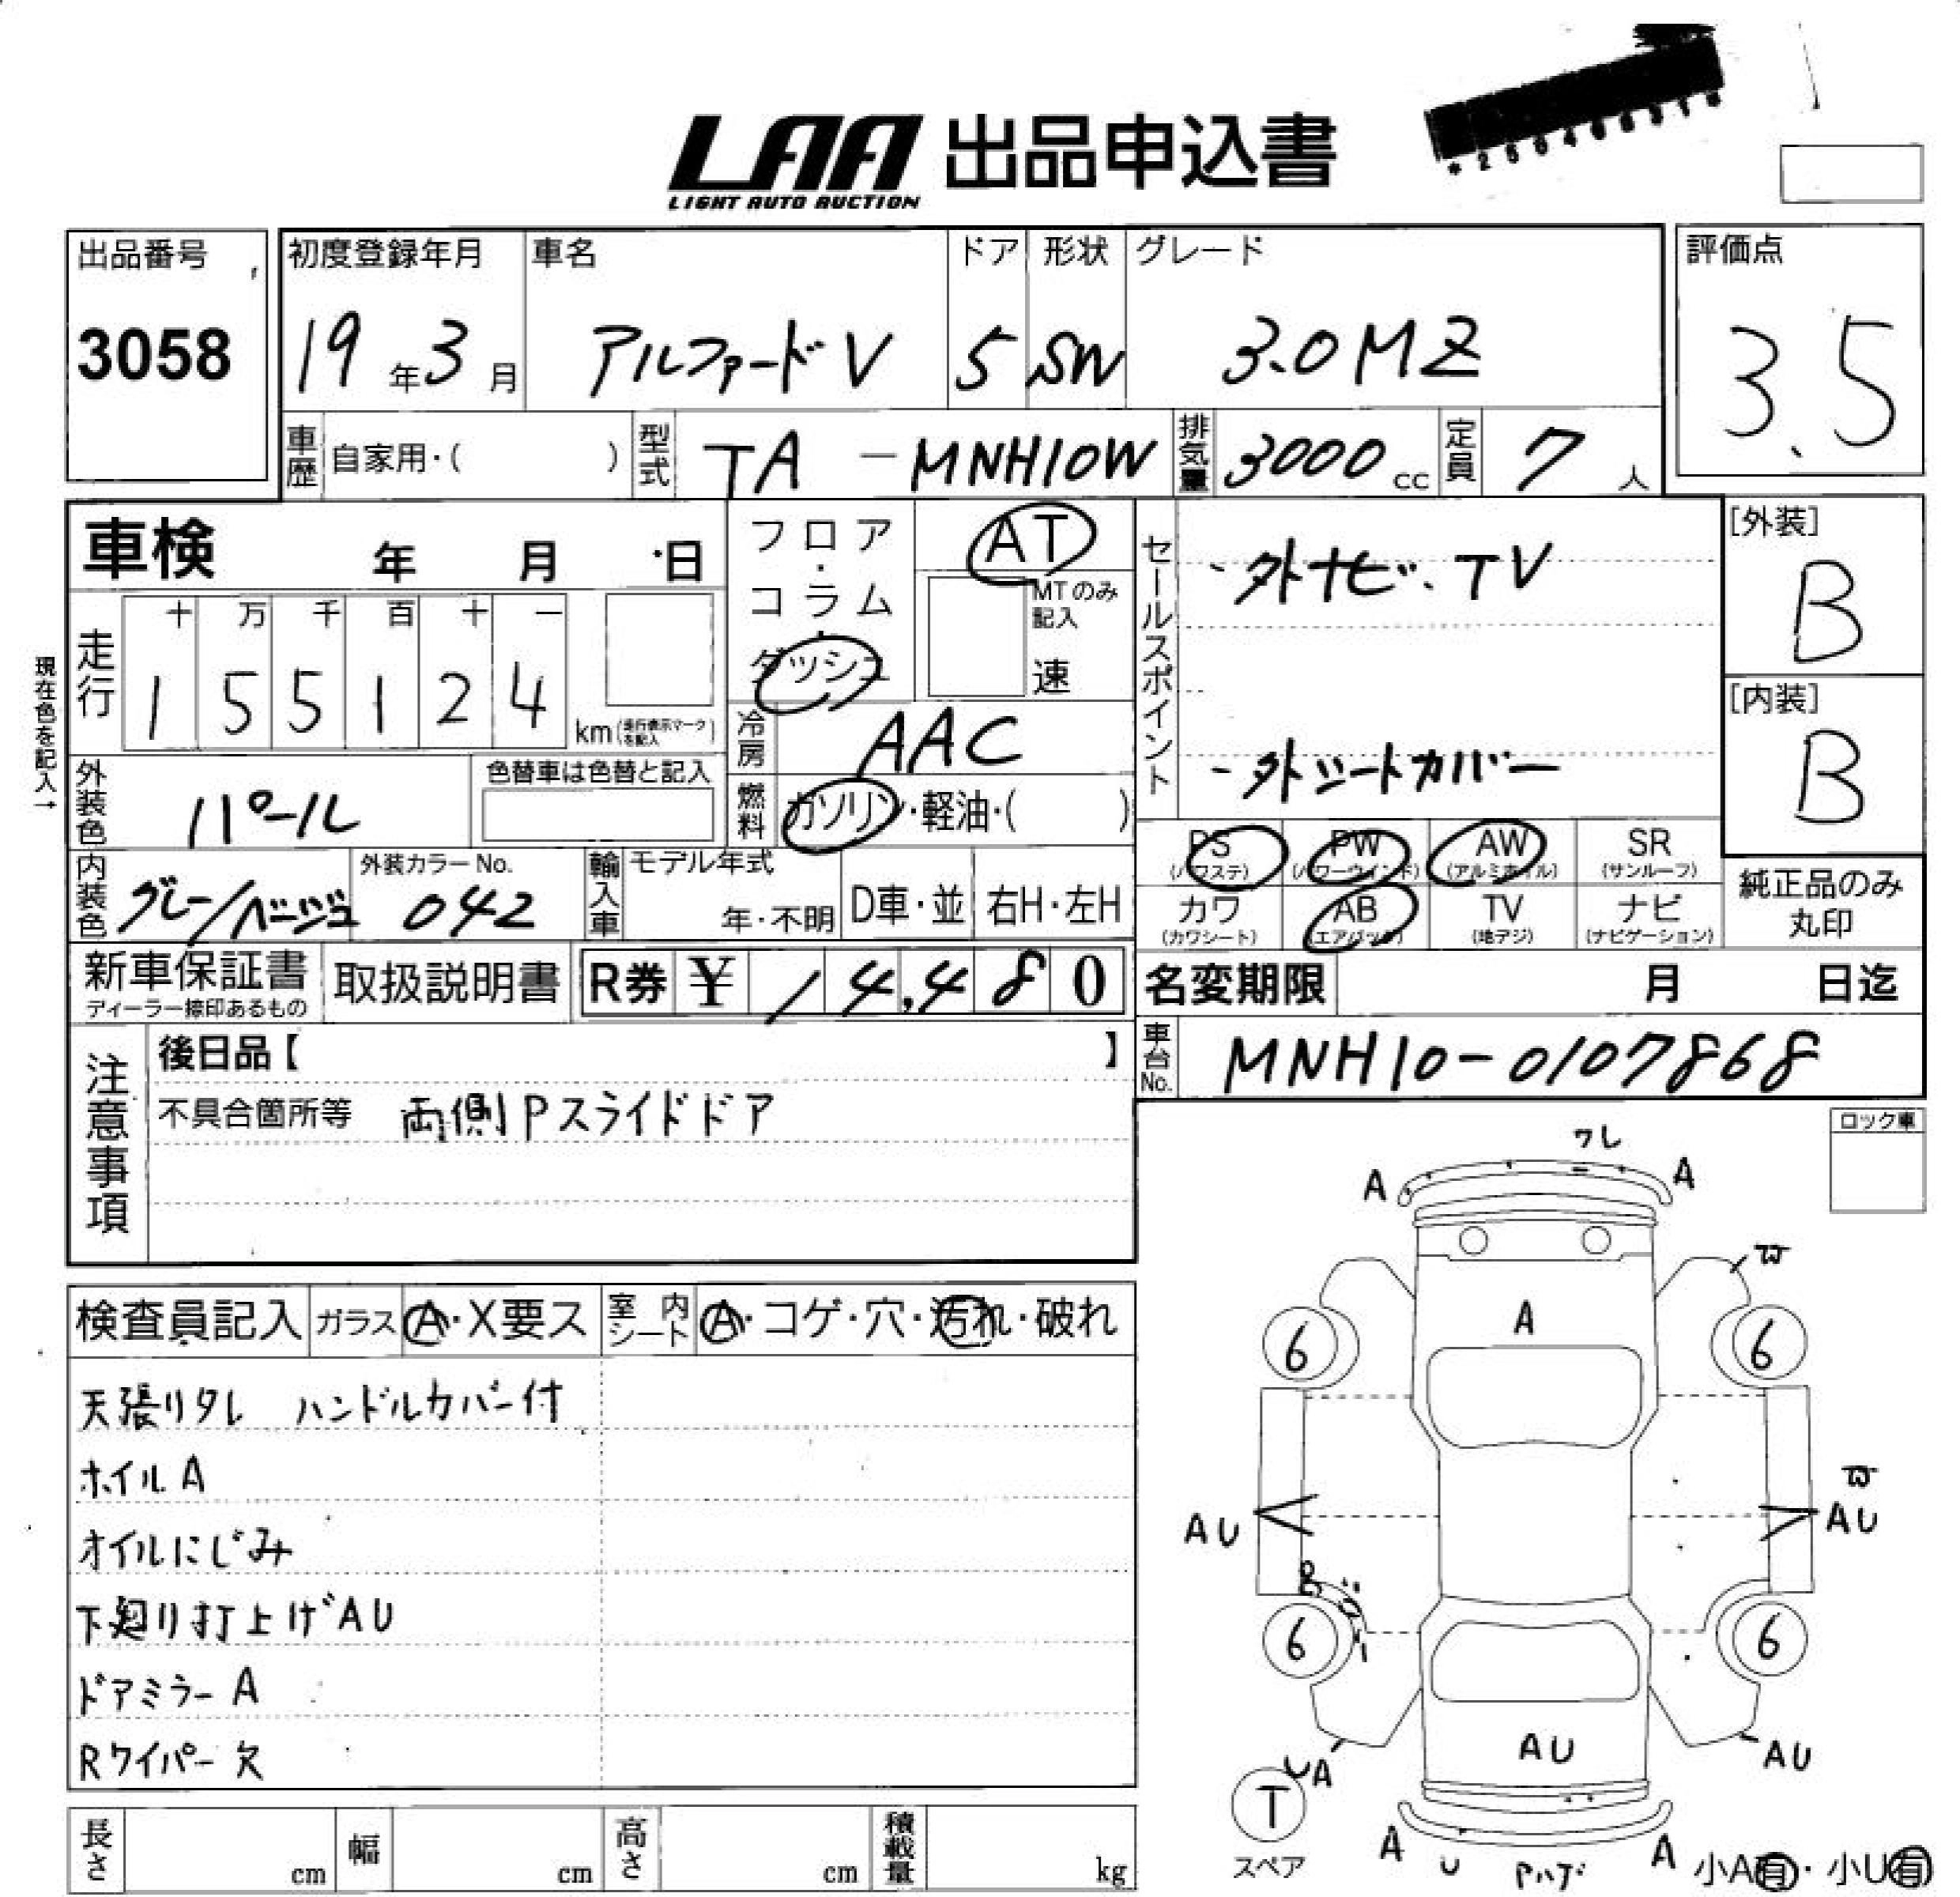 LAA 出品申込書
LIGHT AUTO AUCTION
出品番号
3058
初度登録年月
19年3月
車名
アルファードV
ドア
5
形状
SW
グレード
3.0MZ
評価点
3.5
車歴 自家用・( )
型式 TA-MNH10W
排気量 3000cc
定員 7人
車検 年 月 日
フロア・コラム・ダッシュ
AT
MTのみ記入
速
セールスポイント
・外ナビ・TV
・外シートカバー
[外装]
B
[内装]
B
現在色を記入→
走行
十 万 千 百 十 一
1 5 5 1 2 4 km(走行表示マークを記入)
冷房 AAC
外装色 パール
色替車は色替と記入
燃料 ガソリン・軽油・( )
PS (パワステ) PW (パワーウインド) AW (アルミホイル) SR (サンルーフ)
カワ (カワシート) AB (エアバッグ) TV (地デジ) ナビ (ナビゲーション)
純正品のみ
丸印
内装色 グレー/ベージュ
外装カラーNo.
042
輸入車
モデル年式
年・不明
D車・並
右H・左H
新車保証書
ディーラー捺印あるもの
取扱説明書
R券 ¥ 14,480
名変期限 月 日迄
車台No. MNH10-0107868
注意事項
後日品【 】
不具合箇所等 両側Pスライドドア
ロック車
検査員記入 ガラス A・X要ス 室内シート A・コゲ・穴・汚れ・破れ
天張りタレ ハンドルカバー付
ホイルA
オイルにじみ
下廻り打上げAU
ドアミラーA
Rワイパー欠
ワレ
A
A
A
6
6
AU
AU
6
6
UA
AU
AU
T
スペア
A
U
Pハゲ
A
小A有・小U有
長さ cm
幅 cm
高さ cm
積載量 kg